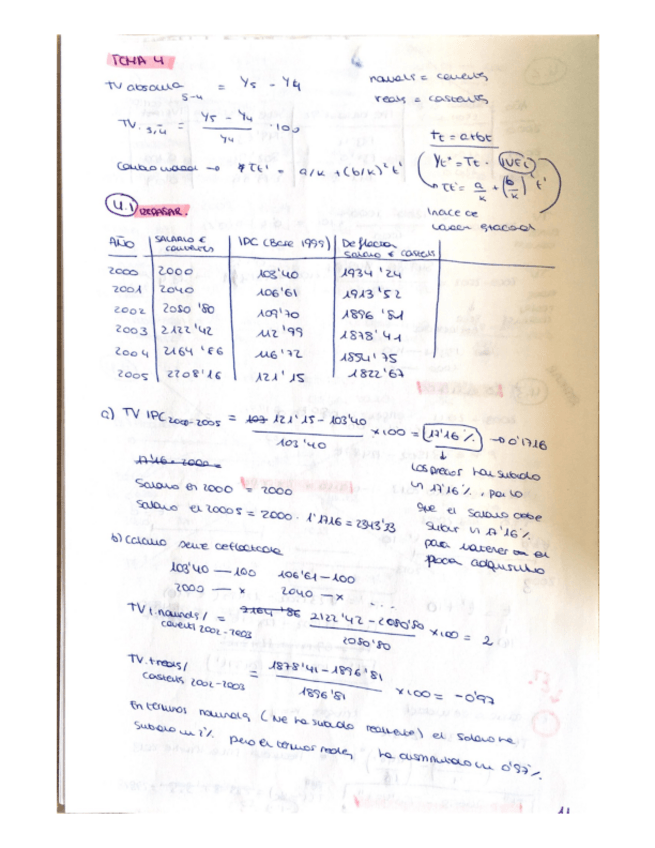 TEMA 4
TV absoluta 5-4 = Y5 - Y4
nominales = corrientes
reales = constantes
TV. 5,4 = Y5 - Y4 / Y4 · 100
Tt = a+bt
Yt' = Tt · IVE
Cambio → Tt' = a/k + (b/k)' t'
Tt' = a/k + (b/k)' t'
4.1 REPASAR.
AÑO | SALARIO € corrientes | IPC (Base 1999) | Deflactar salario € constants
2000 | 2000 | 103'40 | 1934'24
2001 | 2040 | 106'61 | 1913'52
2002 | 2080'80 | 109'70 | 1896'81
2003 | 2122'42 | 112'99 | 1878'41
2004 | 2164'86 | 116'72 | 1854'75
2005 | 2208'16 | 121'15 | 1822'67
a) TV IPC 2000-2005 = 121'15 - 103'40 / 103'40 × 100 = 17'16 % → 0'1716
17'16 · 2000 =
Los precios han subido
un 17'16 %, por lo
que el salario debe
subir un 17'16 %
para mantener el
poder adquisitivo
Salario en 2000 = 2000
Salario en 20005 = 2000 · 1'1716 = 2343'33
b) calculo serie deflactada
103'40 — 100   106'61 — 100
2000 — x   2040 — x   ...
TV t. nominales/corrients 2002-2003 = 2164'86 2122'42 - 2080'80 / 2080'80 × 100 = 2
TV. t reales/constants 2002-2003 = 1878'41 - 1896'81 / 1896'81 × 100 = -0'97
En términos nominales, (que ha subido realmente) el salario ha
subido un 2% pero en términos reales, ha disminuido un 0'97 %.